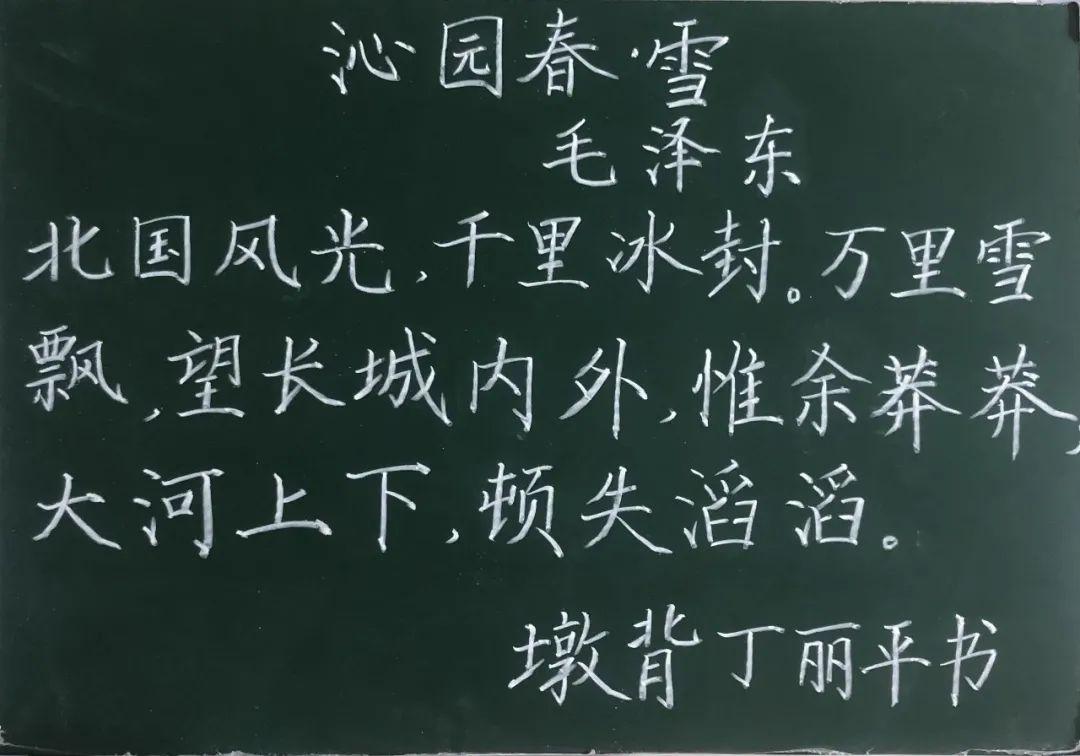 沁园春·雪
毛泽东
北国风光,千里冰封。万里雪
飘,望长城内外,惟余莽莽,
大河上下,顿失滔滔。
墩背丁丽平书